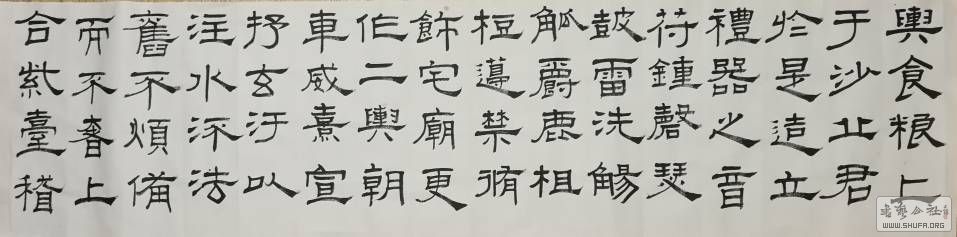 輿食粮亡
于沙丘君
於是造立
禮器之音
符鍾磬瑟
鼓雷洗觴
觚爵鹿柤
梪籩禁脩
飾宅廟更
作二輿朝
車威熹宣
抒玄汙以
注水流法
舊不煩備
而不奢上
合紫臺稽
书艺公社
WWW.SHUFA.ORG